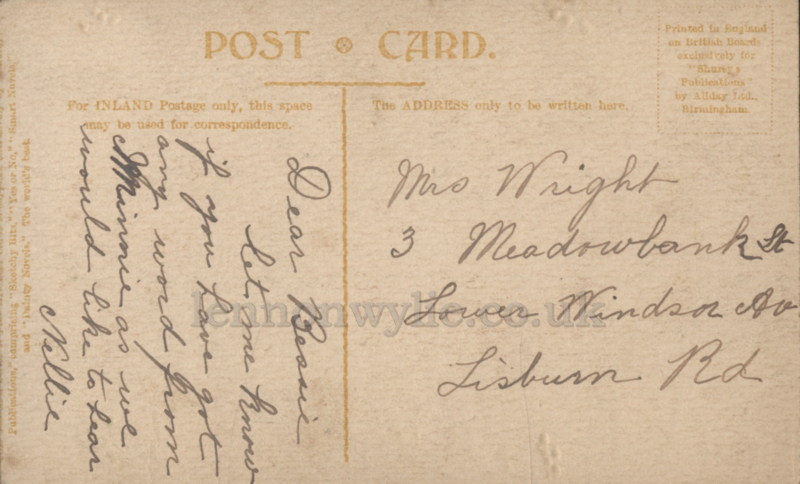 POST CARD.
Printed in England
on British Boards
exclusively for
"Shurey's
Publications"
by Allday Ltd.,
Birmingham.
For INLAND Postage only, this space
may be used for correspondence.
The ADDRESS only to be written here.
Dear Bessie
let me know
if you have got
any word from
Minnie as we
would like to hear
Nellie
Mrs Wright
3 Meadowbank St
Lower Windsor Av
Lisburn Rd
Publications," comprising "Sketchy Bits," "Yes or No," "Smart Novels,"
and "Dainty Novels." The world's best
lennonwylie.co.uk